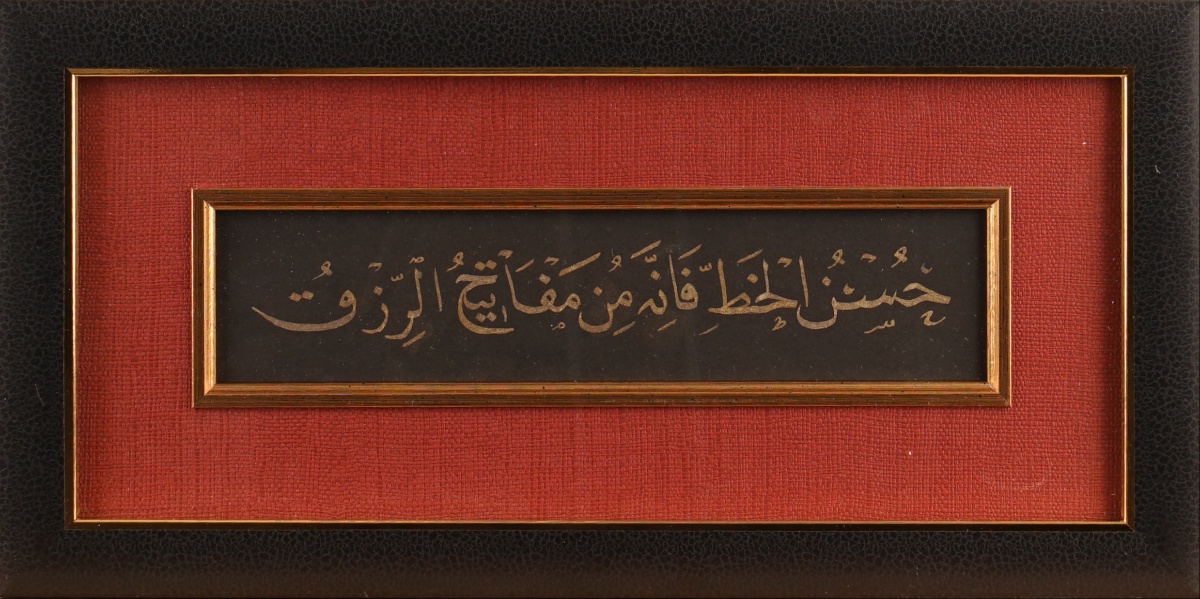 حُسْنُ الْخَطِّ فَاِنَّهُ مِنْ مَفَاتِيحُ الرِّزْقُ